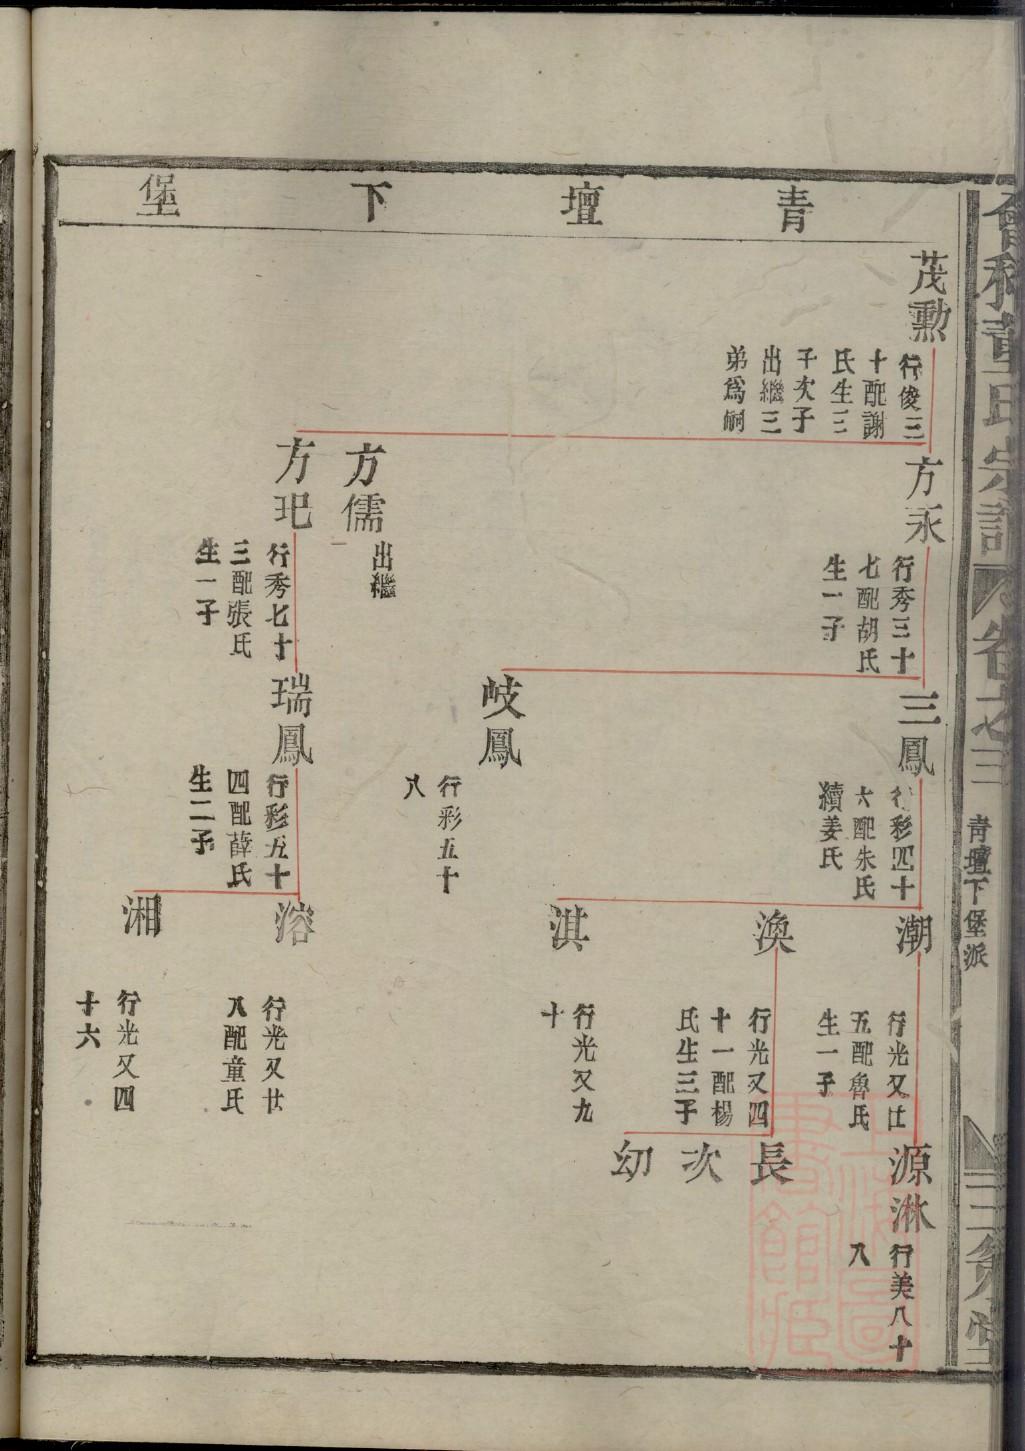 青壇下堡
茂勲
行俊三
十配謝
氏生三
子次子
出繼三
弟爲嗣
方永
行秀三十
七配胡氏
生一子
方儒
出繼
方玘
行秀七十
三配張氏
生一子
三鳳
行彩四十
六配朱氏
續姜氏
岐鳳
行彩五十
八
瑞鳳
行彩五十
四配薛氏
生二子
潮
行光又廿
五配魯氏
生一子
渙
行光又四
十一配楊
氏生三子
淇
行光又九
十
溶
行光又廿
八配童氏
湘
行光又四
十六
源淋
行美八十
八
長
次
幼
會稽董氏宗譜
卷之三
青壇下堡派